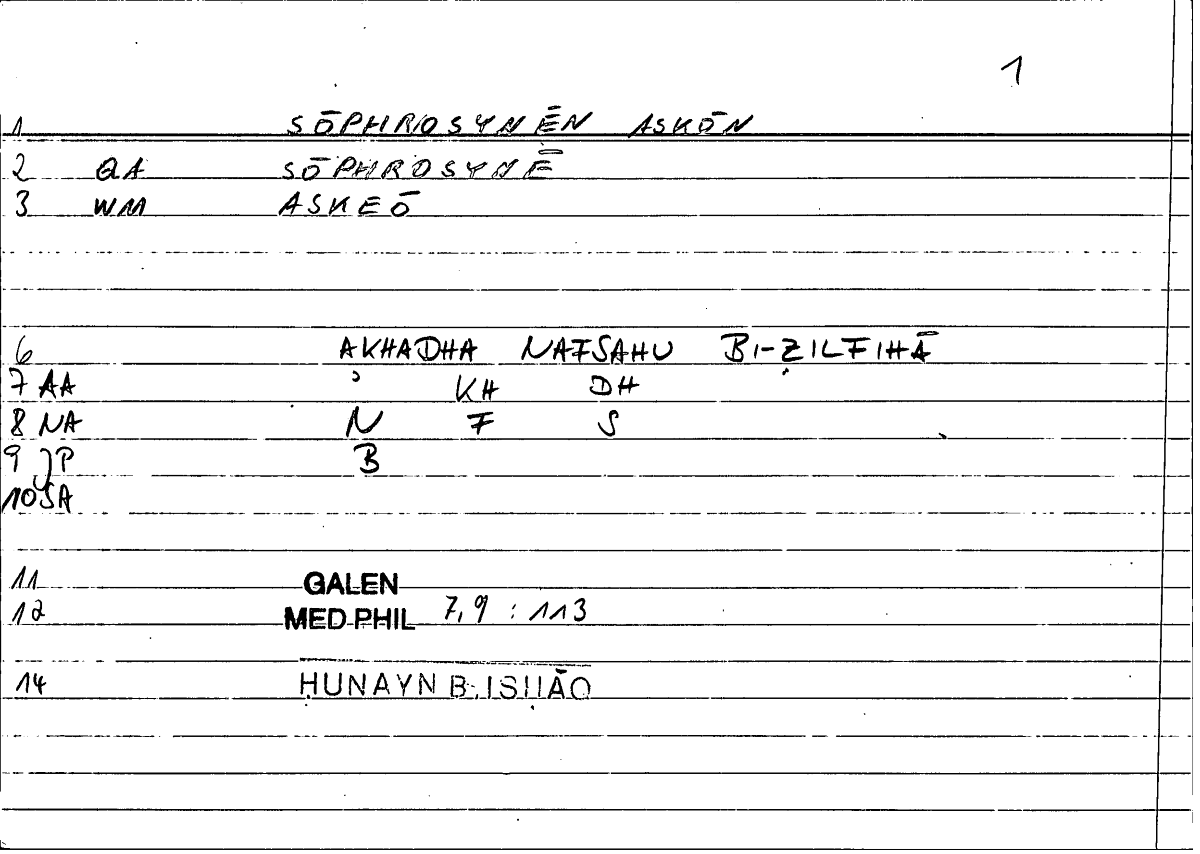 1
1 SŌPHROSYNĒN ASKŌN
2 QA SŌPHROSYNĒ
3 WM ASKEŌ
6 AKHADHA NAFSAHU BI-ẒILFIHĀ
7 AA ʾ KH DH
8 NA N F S
9 JP B
10 SA
11 GALEN
12 MED PHIL 7,9 : 113
14 ḤUNAYN B. ISḤĀQ